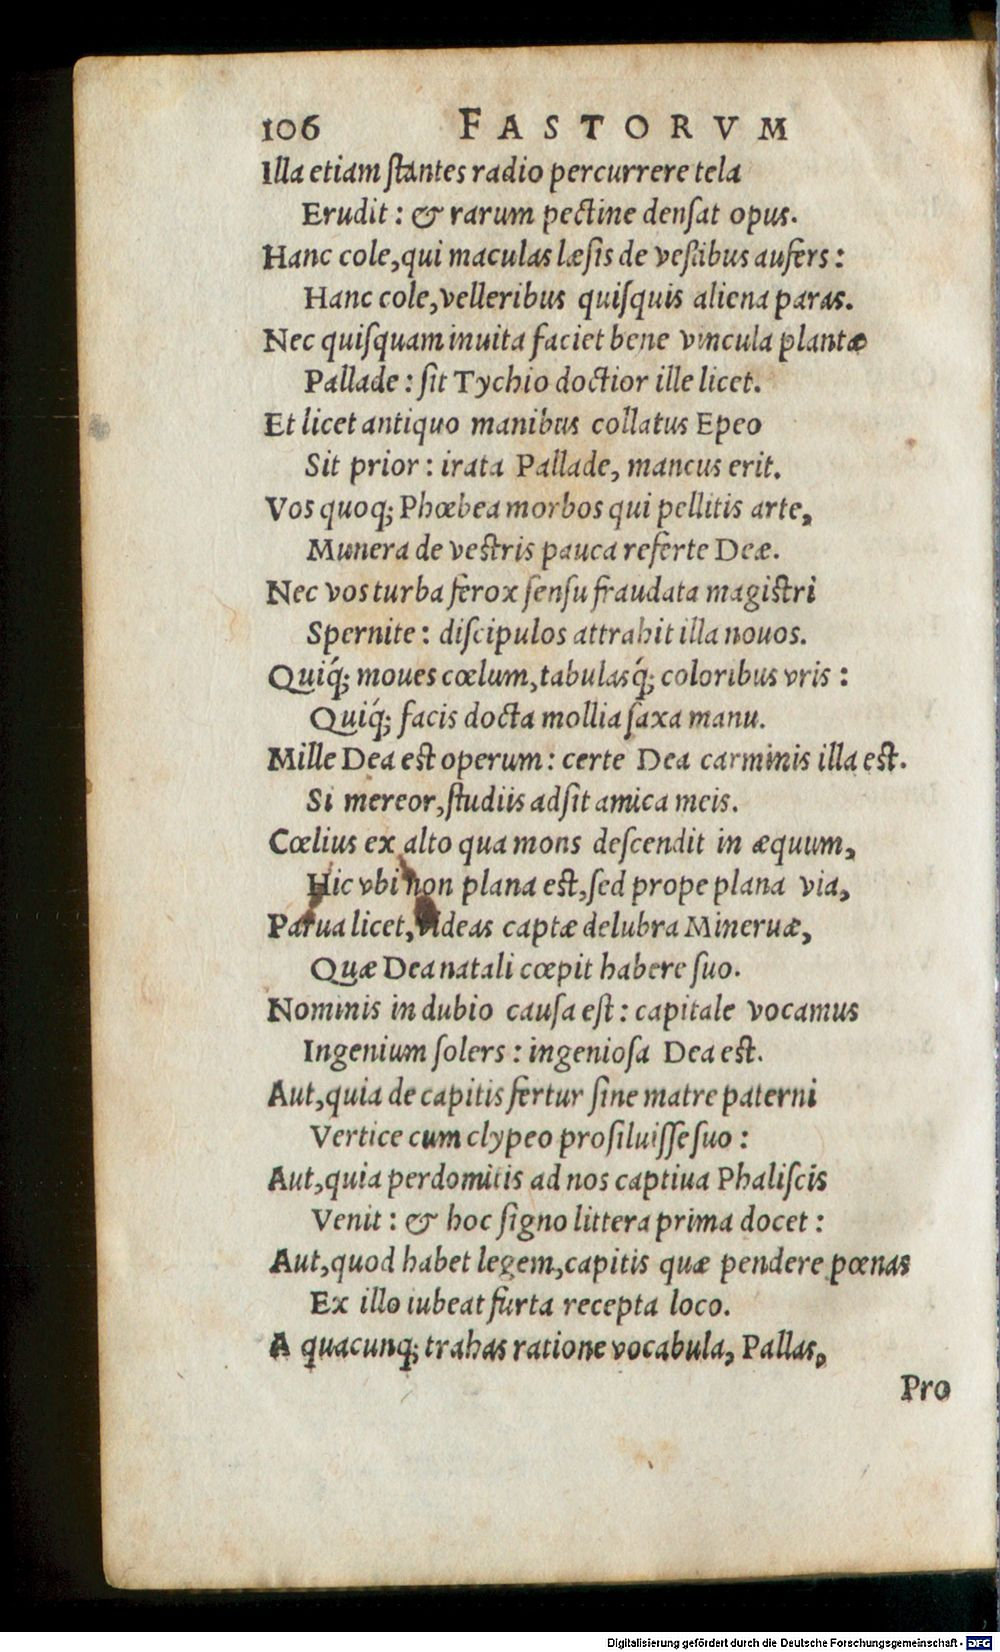 106 FASTORVM
Illa etiam ſtantes radio percurrere tela
Erudit : & rarum pectine denſat opus.
Hanc cole, qui maculas læſis de veſtibus aufers :
Hanc cole, velleribus quiſquis aliena paras.
Nec quiſquam inuita faciet bene vincula plantæ
Pallade : ſit Tychio doctior ille licet.
Et licet antiquo manibus collatus Epeo
Sit prior : irata Pallade, mancus erit.
Vos quoq; Phœbea morbos qui pellitis arte,
Munera de veſtris pauca referte Deæ.
Nec vos turba ferox ſenſu fraudata magiſtri
Spernite : diſcipulos attrahit illa nouos.
Quiq́; moues cœlum, tabulasq́; coloribus vris :
Quiq́; facis docta mollia ſaxa manu.
Mille Dea eſt operum : certe Dea carminis illa eſt.
Si mereor, ſtudiis adſit amica meis.
Cœlius ex alto qua mons deſcendit in æquum,
Hic vbi non plana eſt, ſed prope plana via,
Parua licet, videas captæ delubra Mineruæ,
Quæ Dea natali cœpit habere ſuo.
Nominis in dubio cauſa eſt : capitale vocamus
Ingenium ſolers : ingenioſa Dea eſt.
Aut, quia de capitis fertur ſine matre paterni
Vertice cum clypeo proſiluiſſe ſuo :
Aut, quia perdomitis ad nos captiua Phaliſcis
Venit : & hoc ſigno littera prima docet :
Aut, quod habet legem, capitis quæ pendere pœnas
Ex illo iubeat furta recepta loco.
A quacunq; trahas ratione vocabula, Pallas,
Pro
Digitalisierung gefördert durch die Deutsche Forschungsgemeinschaft - DFG